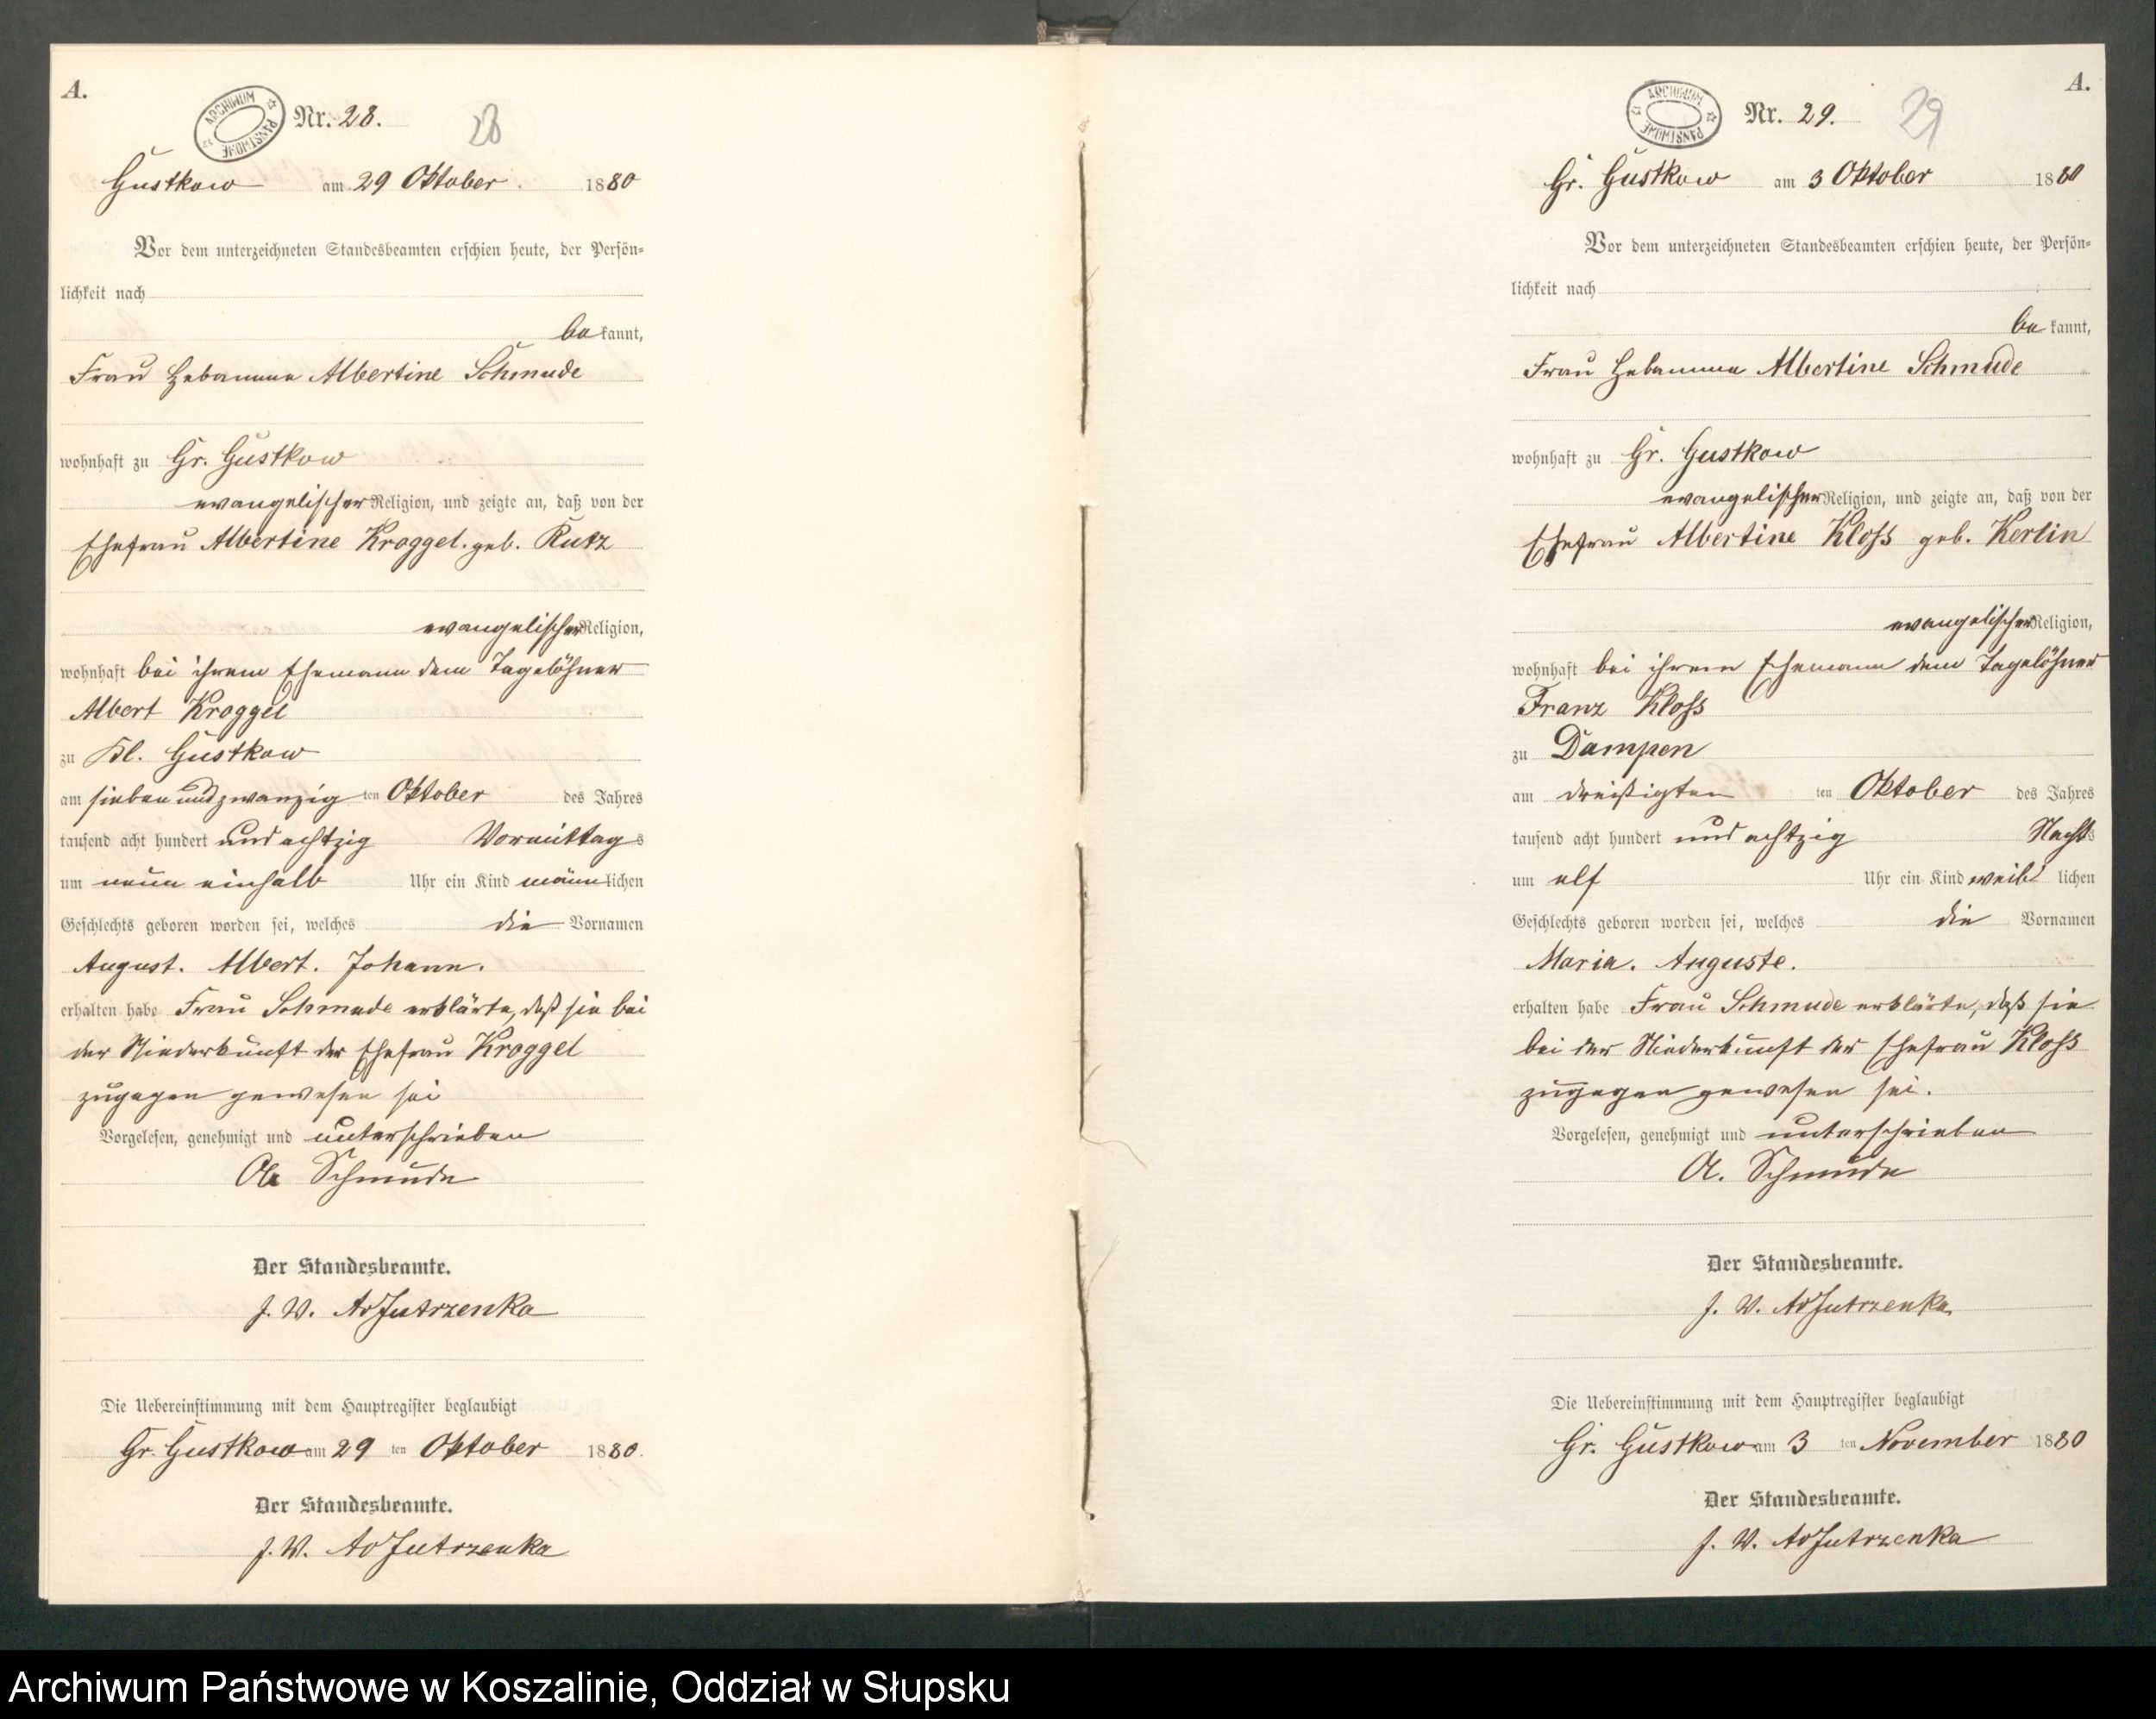 A.
ARCHIWUM PAŃSTWOWE
Nr. 28.
28
Gustkow am 29 Oktober 1880
Vor dem unterzeichneten Standesbeamten erschien heute, der Persön=
lichkeit nach
be kannt,
Frau Hebamme Albertine Schmude
wohnhaft zu Gr. Gustkow
evangelischer Religion, und zeigte an, daß von der
Ehefrau Albertine Kroggel. geb. Rutz
evangelischer Religion,
wohnhaft bei ihrem Ehemann dem Tagelöhner
Albert Kroggel
zu Kl. Gustkow
am sieben und zwanzig ten Oktober des Jahres
tausend acht hundert und achtzig Vormittag s
um neun einhalb Uhr ein Kind männ lichen
Geschlechts geboren worden sei, welches die Vornamen
August. Albert. Johann.
erhalten habe Frau Schmude erklärte, daß sie bei
der Niederkunft der Ehefrau Kroggel
zugegen gewesen sei
Vorgelesen, genehmigt und unterschrieben
Schmude
Der Standesbeamte.
J. V. AvJutrzenka
Die Uebereinstimmung mit dem Hauptregister beglaubigt
Gr. Gustkow am 29 ten Oktober 1880.
Der Standesbeamte.
J. V. AvJutrzenka
A.
ARCHIWUM PAŃSTWOWE
Nr. 29.
29
Gr. Gustkow am 3 Oktober 1880
Vor dem unterzeichneten Standesbeamten erschien heute, der Persön=
lichkeit nach
be kannt,
Frau Hebamme Albertine Schmude
wohnhaft zu Gr. Gustkow
evangelischer Religion, und zeigte an, daß von der
Ehefrau Albertine Kloß geb. Kerlin
evangelischer Religion,
wohnhaft bei ihrem Ehemann dem Tagelöhner
Franz Kloß
zu Dampen
am dreißigten ten Oktober des Jahres
tausend acht hundert und achtzig Nacht s
um elf Uhr ein Kind weib lichen
Geschlechts geboren worden sei, welches die Vornamen
Maria. Auguste.
erhalten habe Frau Schmude erklärte, daß sie
bei der Niederkunft der Ehefrau Kloß
zugegen gewesen sei.
Vorgelesen, genehmigt und unterschrieben
A. Schmude
Der Standesbeamte.
J. V. AvJutrzenka
Die Uebereinstimmung mit dem Hauptregister beglaubigt
Gr. Gustkow am 3 ten November 1880
Der Standesbeamte.
J. V. AvJutrzenka
Archiwum Państwowe w Koszalinie, Oddział w Słupsku